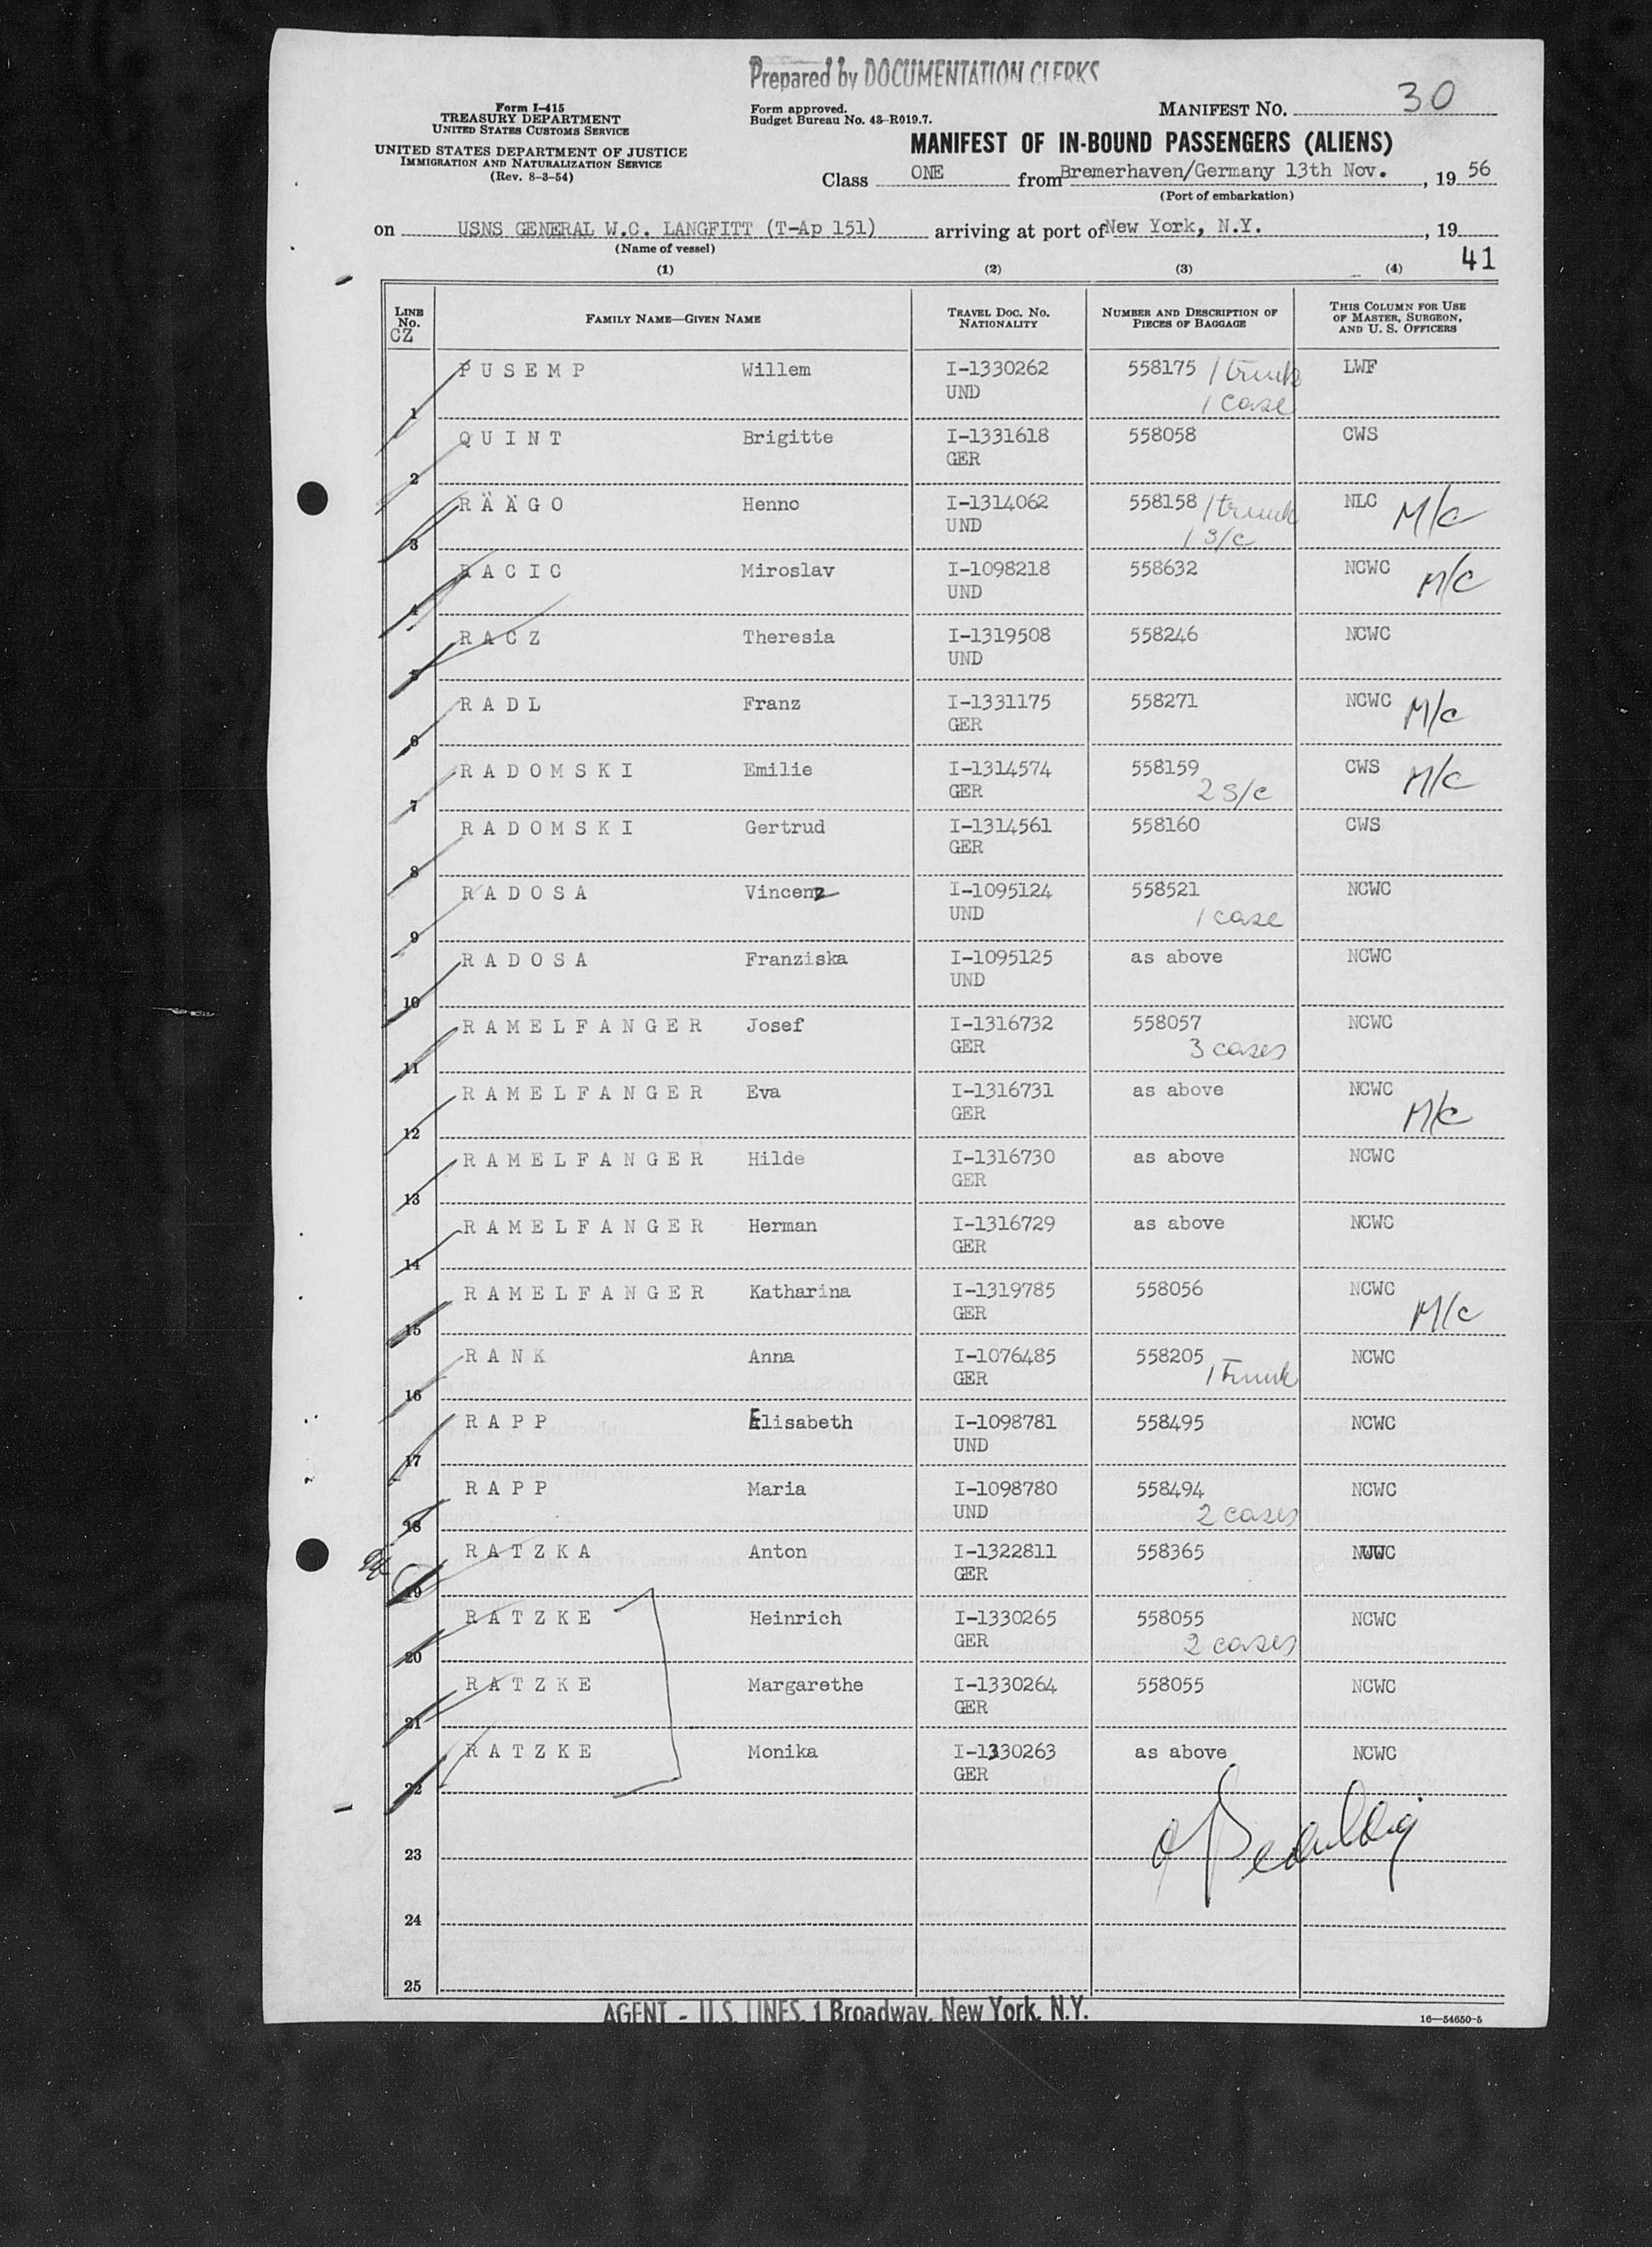 Prepared by DOCUMENTATION CLERKS
Form I-415
TREASURY DEPARTMENT
UNITED STATES CUSTOMS SERVICE
UNITED STATES DEPARTMENT OF JUSTICE
IMMIGRATION AND NATURALIZATION SERVICE
(Rev. 8-3-54)
Form approved.
Budget Bureau No. 43-R019.7.
MANIFEST NO. 30
MANIFEST OF IN-BOUND PASSENGERS (ALIENS)
Class ONE from Bremerhaven/Germany 13th Nov. , 19 56
(Port of embarkation)
on USNS GENERAL W.C. LANGFITT (T-Ap 151) arriving at port of New York, N.Y. , 19
(Name of vessel)
41
(1) (2) (3) (4)
LINE No. FAMILY NAME—GIVEN NAME TRAVEL DOC. No. NATIONALITY NUMBER AND DESCRIPTION OF PIECES OF BAGGAGE THIS COLUMN FOR USE OF MASTER, SURGEON, AND U. S. OFFICERS
CZ
PUSEMP Willem I-1330262 558175 1 trunk LWF
1 UND 1 case
QUINT Brigitte I-1331618 558058 CWS
2 GER
RÄÄGO Henno I-1314062 558158 1 trunk NLC M/C
3 UND 1 S/C
RACIC Miroslav I-1098218 558632 NCWC M/C
4 UND
RACZ Theresia I-1319508 558246 NCWC
5 UND
RADL Franz I-1331175 558271 NCWC M/C
6 GER
RADOMSKI Emilie I-1314574 558159 CWS M/C
7 GER 2 S/C
RADOMSKI Gertrud I-1314561 558160 CWS
8 GER
RADOSA Vincenz I-1095124 558521 NCWC
9 UND 1 case
RADOSA Franziska I-1095125 as above NCWC
10 UND
RAMELFANGER Josef I-1316732 558057 NCWC
11 GER 3 cases
RAMELFANGER Eva I-1316731 as above NCWC
12 GER M/C
RAMELFANGER Hilde I-1316730 as above NCWC
13 GER
RAMELFANGER Herman I-1316729 as above NCWC
14 GER
RAMELFANGER Katharina I-1319785 558056 NCWC
15 GER M/C
RANK Anna I-1076485 558205 NCWC
16 GER 1 Trunk
RAPP Elisabeth I-1098781 558495 NCWC
17 UND
RAPP Maria I-1098780 558494 NCWC
18 UND 2 cases
RATZKA Anton I-1322811 558365
19 GER
RATZKE Heinrich I-1330265 558055 NCWC
20 GER 2 cases
RATZKE Margarethe I-1330264 558055 NCWC
21 GER
RATZKE Monika I-1330263 as above NCWC
22 GER
23
24
25
AGENT - U.S. LINES, 1 Broadway, New York, N.Y.
16—54650-5